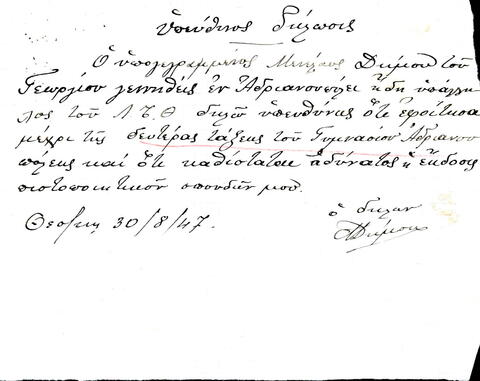 ὑπεύθυνος δήλωσις
Ὁ ὑπογεγραμμένος Δήμου τοῦ
Γεωργίου γεννηθείς ἐν Ἀδριανουπόλει ἤδη ὑπάλλη
λος τοῦ Λ.Τ.Θ δηλῶ ὑπευθύνως ὅτι ἐφοίτησα
μέχρι τῆς δευτέρας τάξεως τοῦ Γυμνασίου Ἀδριανου
πόλεως καί ὅτι καθίσταται ἀδύνατος ἡ ἔκδοσις
πιστοποιητικοῦ σπουδῶν μου.
Θεσ/κη 30/8/47.
ὁ δηλῶν